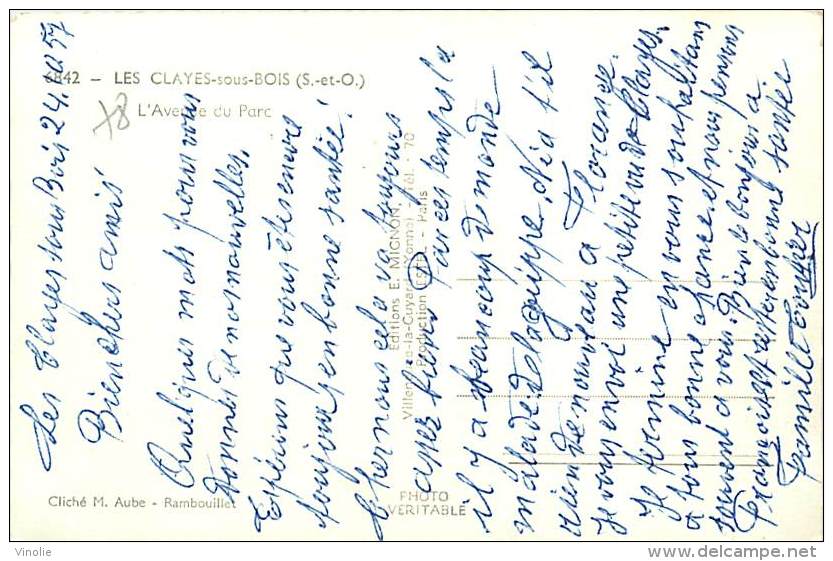 6842 - LES CLAYES-sous-BOIS (S.-et-O.)
L'Avenue du Parc
x8
Les Clayes sous Bois 24. 57
Bien chers amis
Quelques mots pour vous
donner de nos nouvelles.
Espérons que vous êtes encore
toujours en bonne santée!
Chez nous cela va toujours
assez bien Par ces temps la
il y a beaucoup de monde
malade de la grippe. N'a t'il
rien de nouveau a Florange.
Je vous envoi une petite vu de Clayes.
Je termine en vous souhaitans
a tous bonne chance et nous pensons
souvent a vous. Bien le bonjours a
Françoise et rester en bonne santée
Famille
Editions E. MIGNON
Villeneuve-la-Guyard (Yonne) - Tél. 70
Production LESTEL - Paris
PHOTO
VERITABLE
Cliché M. Aube - Rambouillet
Vinolie
delcampe.net